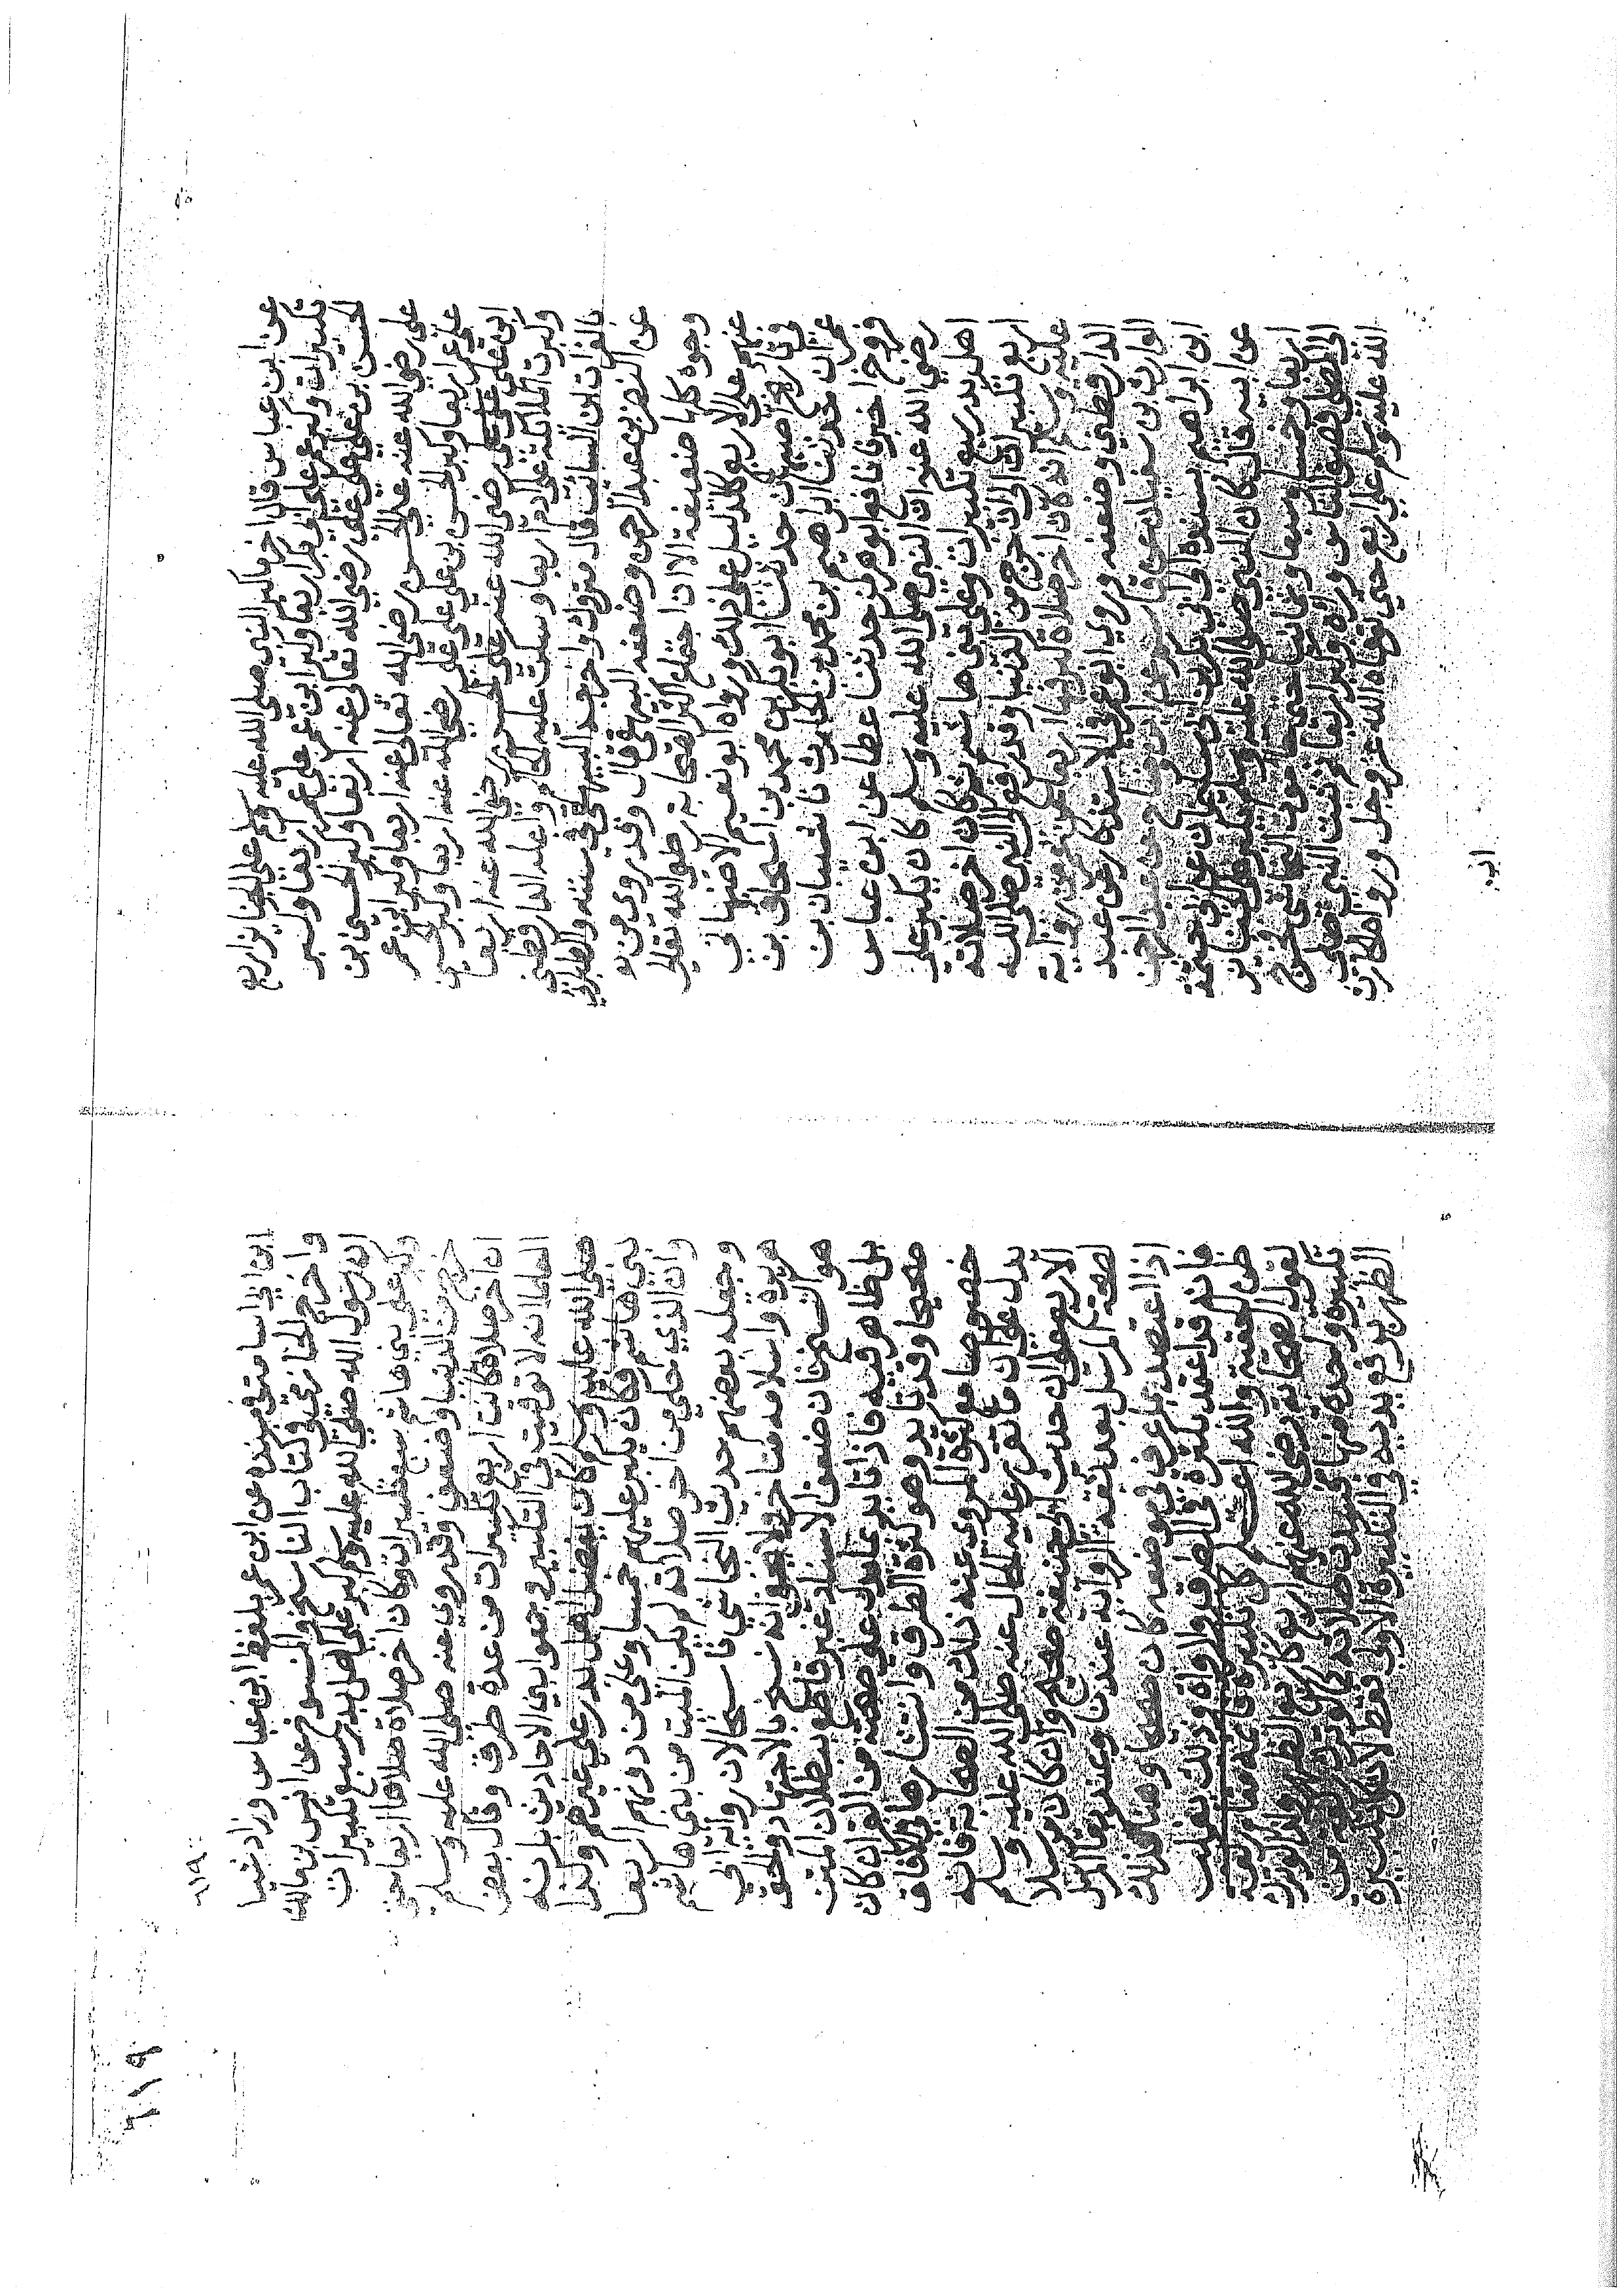 عن ابن عباس قال اخر ما كبر النبي صلى الله عليه وسلم على الجنايز اربع
تكبيرات وكبر عمر على ابي بكر اربعا وكبر ابن عمر على عمر اربعا وكبر
الحسن بن علي على علي رضي الله تعالى عنه اربعا وكبر الحسين بن
علي رضي الله عنه على الحسن رضي الله تعالى عنه اربعا وكبر ابن عمر
على عمر اربعا وكبر الحسن بن علي على علي رضي الله عنه اربعا وكبر الحسين
ابن علي رضي الله عنه على الحسن رضي الله عنه اربعا
وكبرت الملائكة على ادم اربعا وسكت عليه الحاكم واعله الدارقطني
بالفرات بن السائب قال متروك واخرجه البيهقي في سننه والطبراني
عن النضر بن عبد الرحمن وضعفه البيهقي قال وقد روي من
وجوه كلها ضعيفة الا ان اجتماع اكثر الصحابة رضوان الله تعالى
عنهم على الاربع كالدليل على ذلك ورواه ابو نعيم الاصبهاني
في تاريخ اصبهان حدثنا ابو بكر بن محمد بن اسحاق بن
عمران حدثنا ابراهيم بن محمد بن الحارث نا شيبان بن
فروخ اخبرنا نافع ابو هرمز حدثنا عطا عن ابن عباس
رضي الله عنه ان النبي صلى الله عليه وسلم كان يكبر على
اهل بدر سبع تكبيرات وعلى بني هاشم ثم كان اخر صلاته
اربع تكبيرات الى ان خرج من الدنيا وقد رفع الى النبي صلى الله
عليه وسلم انه كان اخر صلاة كبر فيها اربعا عن عمر من رواية
الدارقطني وضعفه وروى ابو عمر في الاستذكار عن عبد
الوارث بن سفيان عن قاسم عن ابن وضاح عن عبد الرحمن
ابن ابراهيم بسنده الى ابي بكر بن سليمان بن ابي حثمة
عن ابيه قال كان النبي صلى الله عليه وسلم يكبر على الجنايز
اربعا وخمسا وسبعا وثمانيا حتى جاء موت النجاشي فخرج
الى المصلى فصف الناس وراه وكبر اربعا ثم ثبت النبي صلى
الله عليه وسلم على اربع حتى توفاه الله عز وجل وروا الحارث
ابن
ابن ابي اسامة في مسنده عن ابن عمر بلفظ ابن عباس وزاد شيا
واخرج الحازمي في كتاب الناسخ والمنسوخ عن انس بن مالك
ان رسول الله صلى الله عليه وسلم كبر على اهل بدر سبع تكبيرات
وكبر على بني هاشم سبع تكبيرات وكان اخر صلاة صلاها اربعا حتى
خرج من الدنيا وضعف وقد روي عنه صلى الله عليه وسلم
ان اخر صلاة كانت اربع تكبيرات من عدة طرق وقال بعض
العلما انه لا توقيت في التكبير وجمعوا بين الاحاديث بانه
صلى الله عليه وسلم كان يفضل اهل بدر على غيرهم وكذا
بني هاشم فكان يكبر عليهم خمسا وعلى من دونهم اربعا
وان الذي حكي من اخر صلاته لم يكن الميت من بني هاشم
وجعله بعضهم حديث النجاشي ناسخا لان رواية ابي
هريرة واسلامه متاخر ولا يخفى انه نسخ بالاجتهاد والحق
هو النسخ فان ضعف الاسناد غير قاطع ببطلان المتن
بل ظاهر فيه فاذا تايد بما يدل على صحته من القراين كان
صحيحا وقد تايد وهو كثرة الطرق وانتشارها في الافاق
خصوصا مع كثرة المروي عنه ذلك من الصحابة فانه
يدل على ان ما تقرر عليه الحال عنه صلى الله عليه وسلم
الاربع على ان حديث ابي حنيفة صحيح وان كان مرسلا
لصحة المرسل بعد ثقة الرواية عندنا وعند نفاة المرسل
اذا اعتضد بما عرف في موضعه كان صحيحا وهنا كذلك
فانه قد اعتضد بكثرة في الطرق والرواة وذلك يغلب
ظن الحقية والله اعلم كل تكبيرة قائمة مقام ركعة
لقول الصحابة رضي الله عنهم اربع كاربع الظهر ولذا لو ترك
تكبيرة واحدة منها فسدت صلاته كما لو ترك ركعة من
الظهر يرفع يديه في التكبيرة الاولى فقط لان كل تكبيرة
١١٩